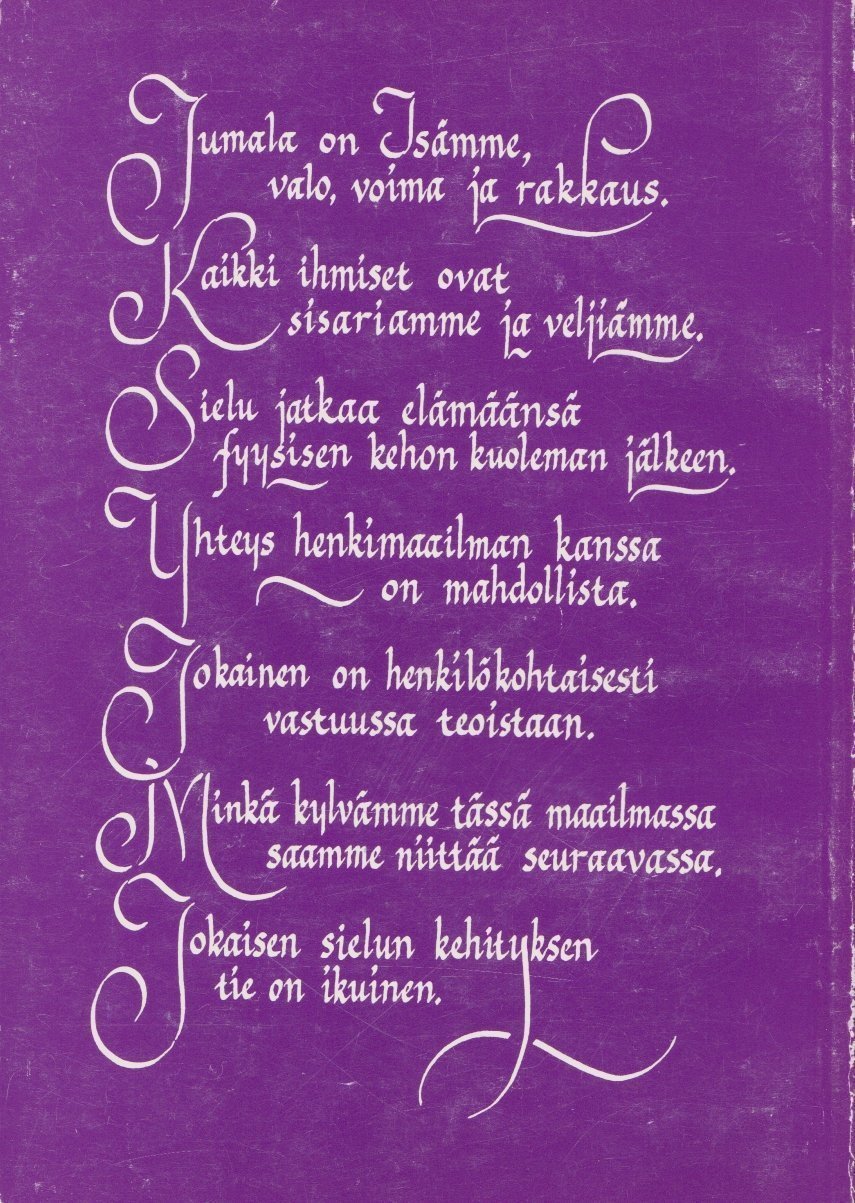 Jumala on Isämme,
valo, voima ja rakkaus.
Kaikki ihmiset ovat
sisariamme ja veljiämme.
Sielu jatkaa elämäänsä
fyysisen kehon kuoleman jälkeen.
Yhteys henkimaailman kanssa
on mahdollista.
Jokainen on henkilökohtaisesti
vastuussa teoistaan.
Minkä kylvämme tässä maailmassa
saamme niittää seuraavassa.
Jokaisen sielun kehityksen
tie on ikuinen.